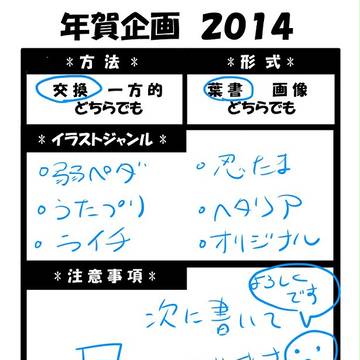 年賀企画 2014
*方法* *形式*
交換 一方的 葉書 画像
どちらでも どちらでも
*イラストジャンル*
。弱ペダ 。忍たま
。うたプリ 。ヘタリア
。ライチ 。オリジナル
*注意事項*
よろしく
です
次に書いて